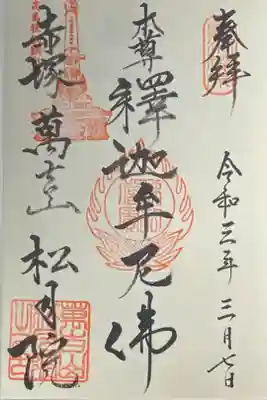 奉拝
令和三年 三月七日
本尊釋迦牟尼佛
赤塚 萬吉山 松月院